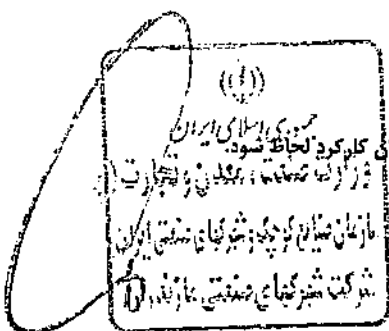 جمهوری اسلامی ایران
ن کارکرد لحاظ شود.
وزارت صنعت، معدن و تجارت
سازمان صنایع کوچک و شهرکهای صنعتی ایران
شرکت شهرکهای صنعتی مازندران